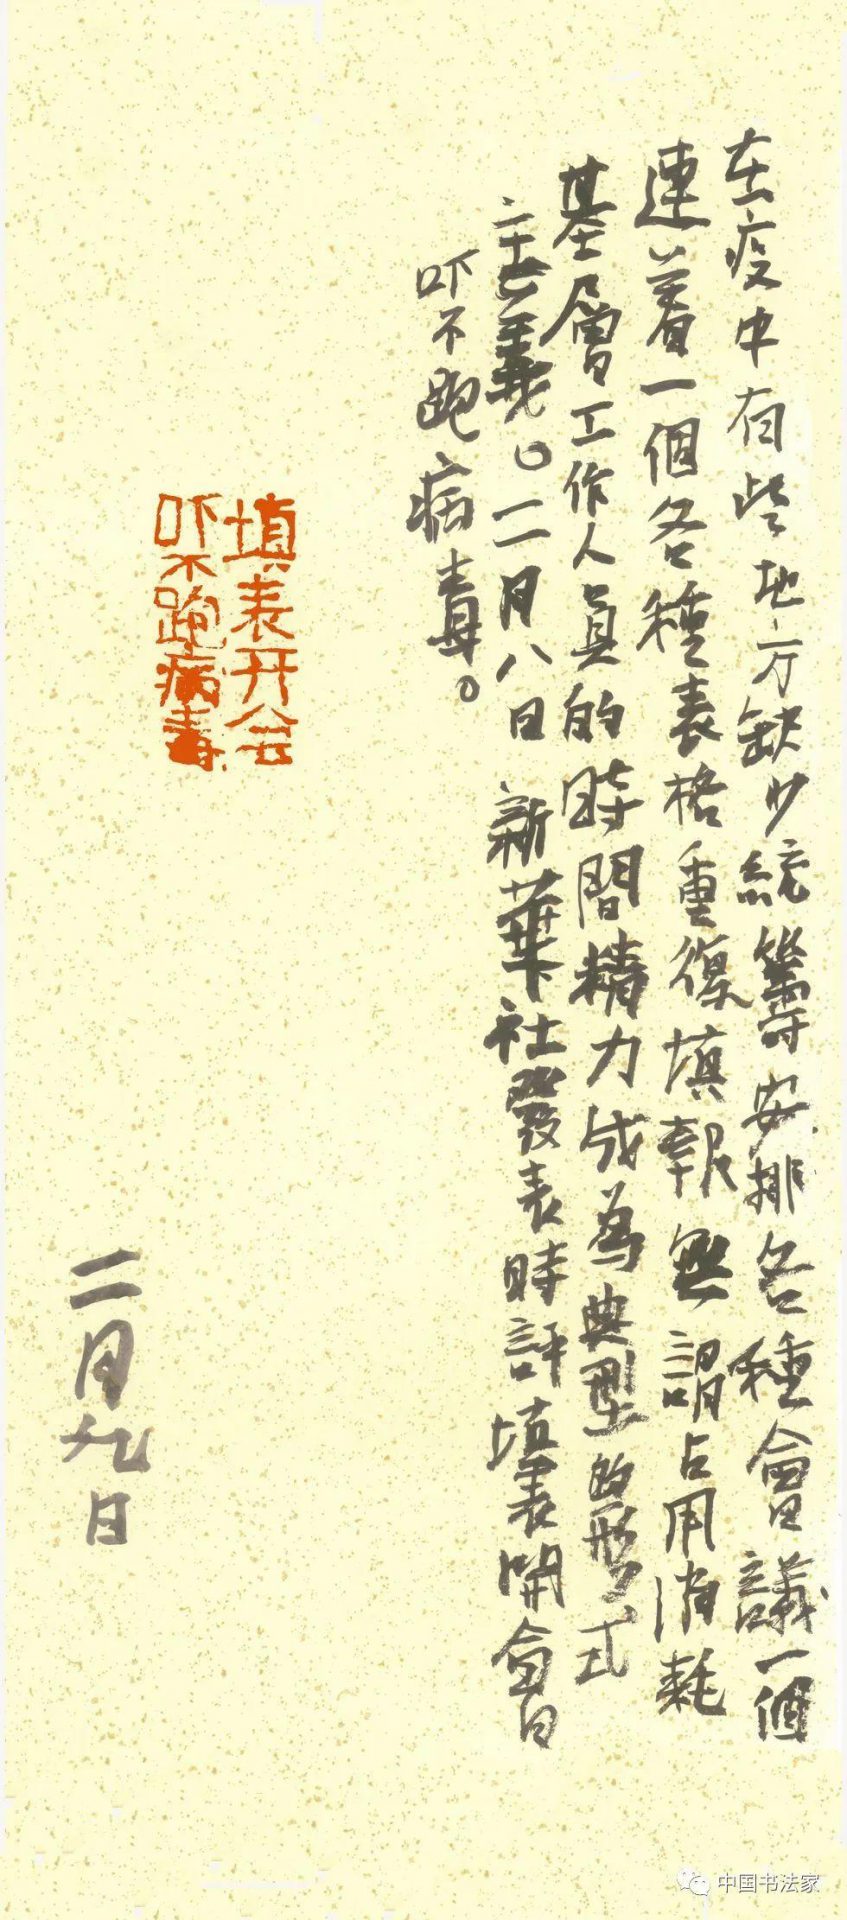 在疫中有些地方缺少統籌安排各種會議一個
連着一個各種表格重復填報無謂占用消耗
基層工作人員的時間精力成為典型的形式
主義。二月八日新華社發表時評填表開會
吓不跑病毒。
填表开会
吓不跑病毒
二月九日
中国书法家